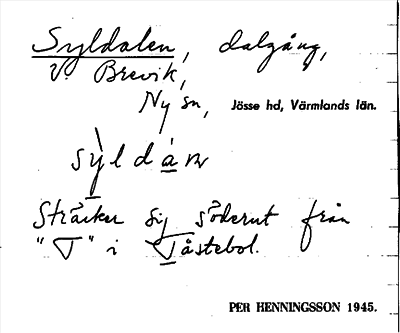 Syldalen, dalgång,
V. Brevik,
Ny sn, Jösse hd, Värmlands län.
Sträcker sig söderut från
"T" i Tåstebol.
PER HENNINGSSON 1945.